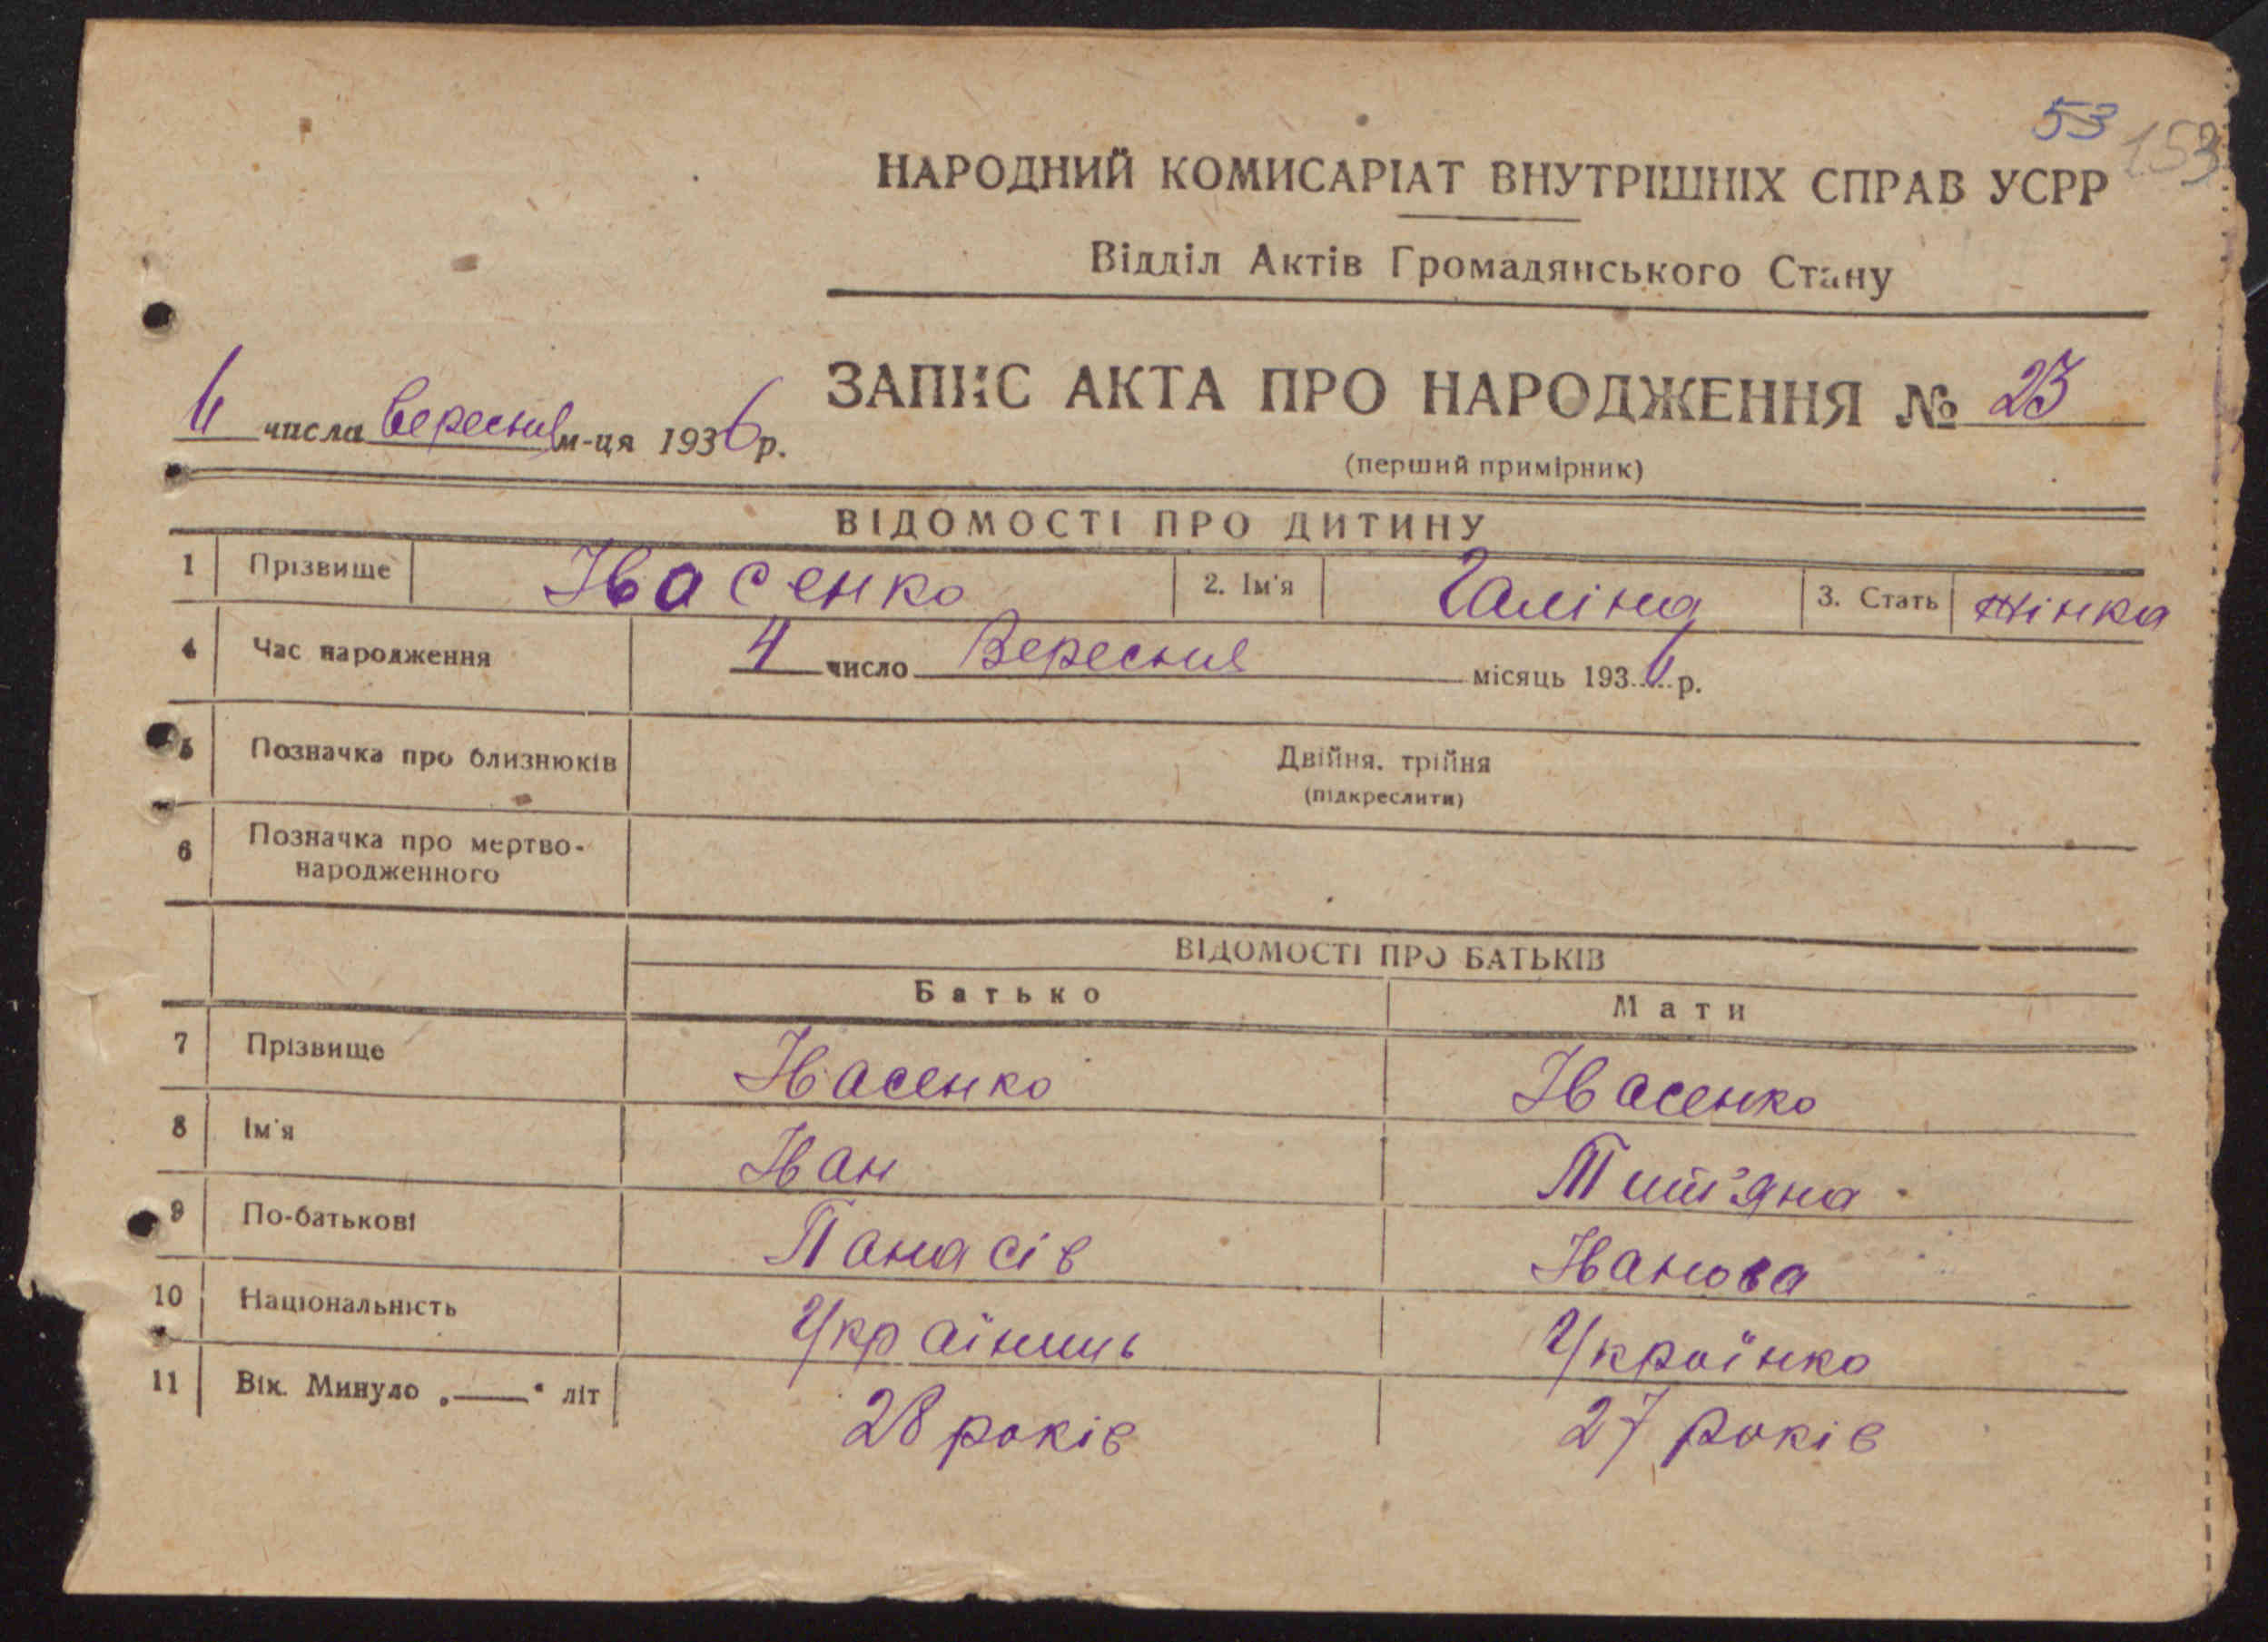 53
153
НАРОДНИЙ КОМИСАРІАТ ВНУТРІШНІХ СПРАВ УСРР
Відділ Актів Громадянського Стану
6 числа вересня м-ця 1936 р.
ЗАПИС АКТА ПРО НАРОДЖЕННЯ № 23
(перший примірник)
ВІДОМОСТІ ПРО ДИТИНУ
1 Прізвище Івасенко 2. Ім'я Галіна 3. Стать жінка
4 Час народження 4 число Вересня місяць 1936 р.
5 Позначка про близнюків Двійня. трійня
(підкреслити)
6 Позначка про мертво-
народженного
ВІДОМОСТІ ПРО БАТЬКІВ
Батько Мати
7 Прізвище Івасенко Івасенко
8 Ім'я Іван Тит'яна
9 По-батькові Панасів Іванова
10 Національність Українець Українка
11 Вік. Минуло „—“ літ 28 років 27 років